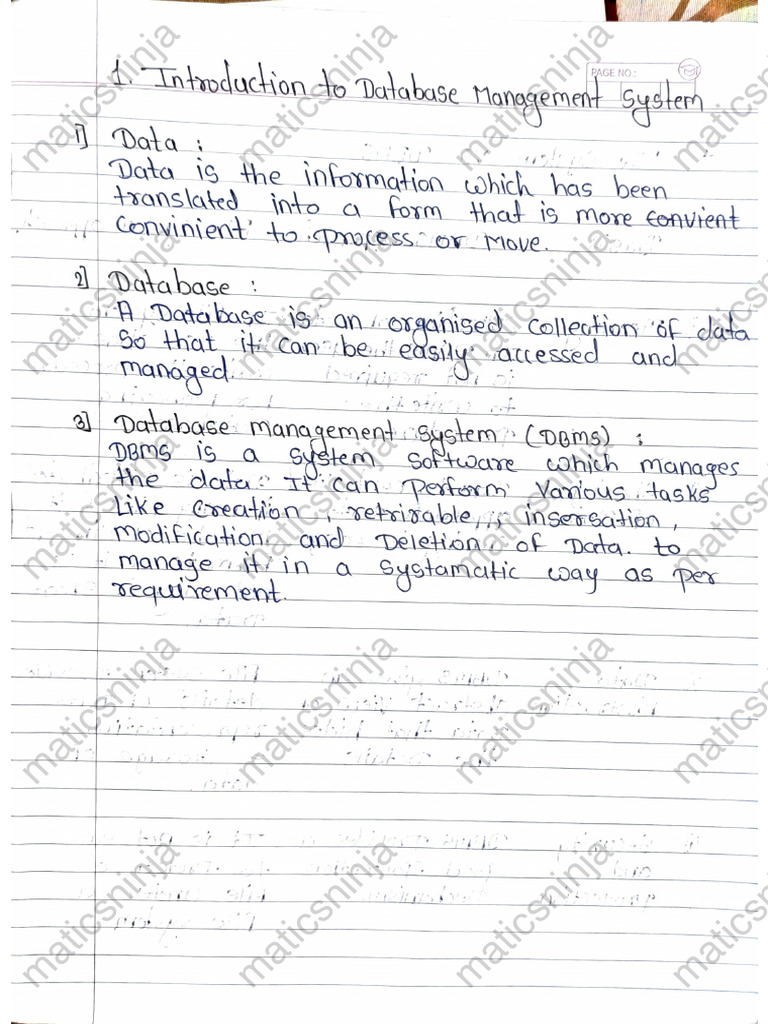 PAGE NO.:
1. Introduction to Database Management System
1] Data :
Data is the information which has been
translated into a form that is more convient
convinient to process or move.
2] Database :
A Database is an organised collection of data
So that it can be easily accessed and
managed.
3] Database management system (DBMS) :
DBMS is a system software which manages
the data. It can perform various tasks
Like creation, retrirable, insersation,
modification and Deletion of Data. to
manage it in a systamatic way as per
requirement.
maticsninja